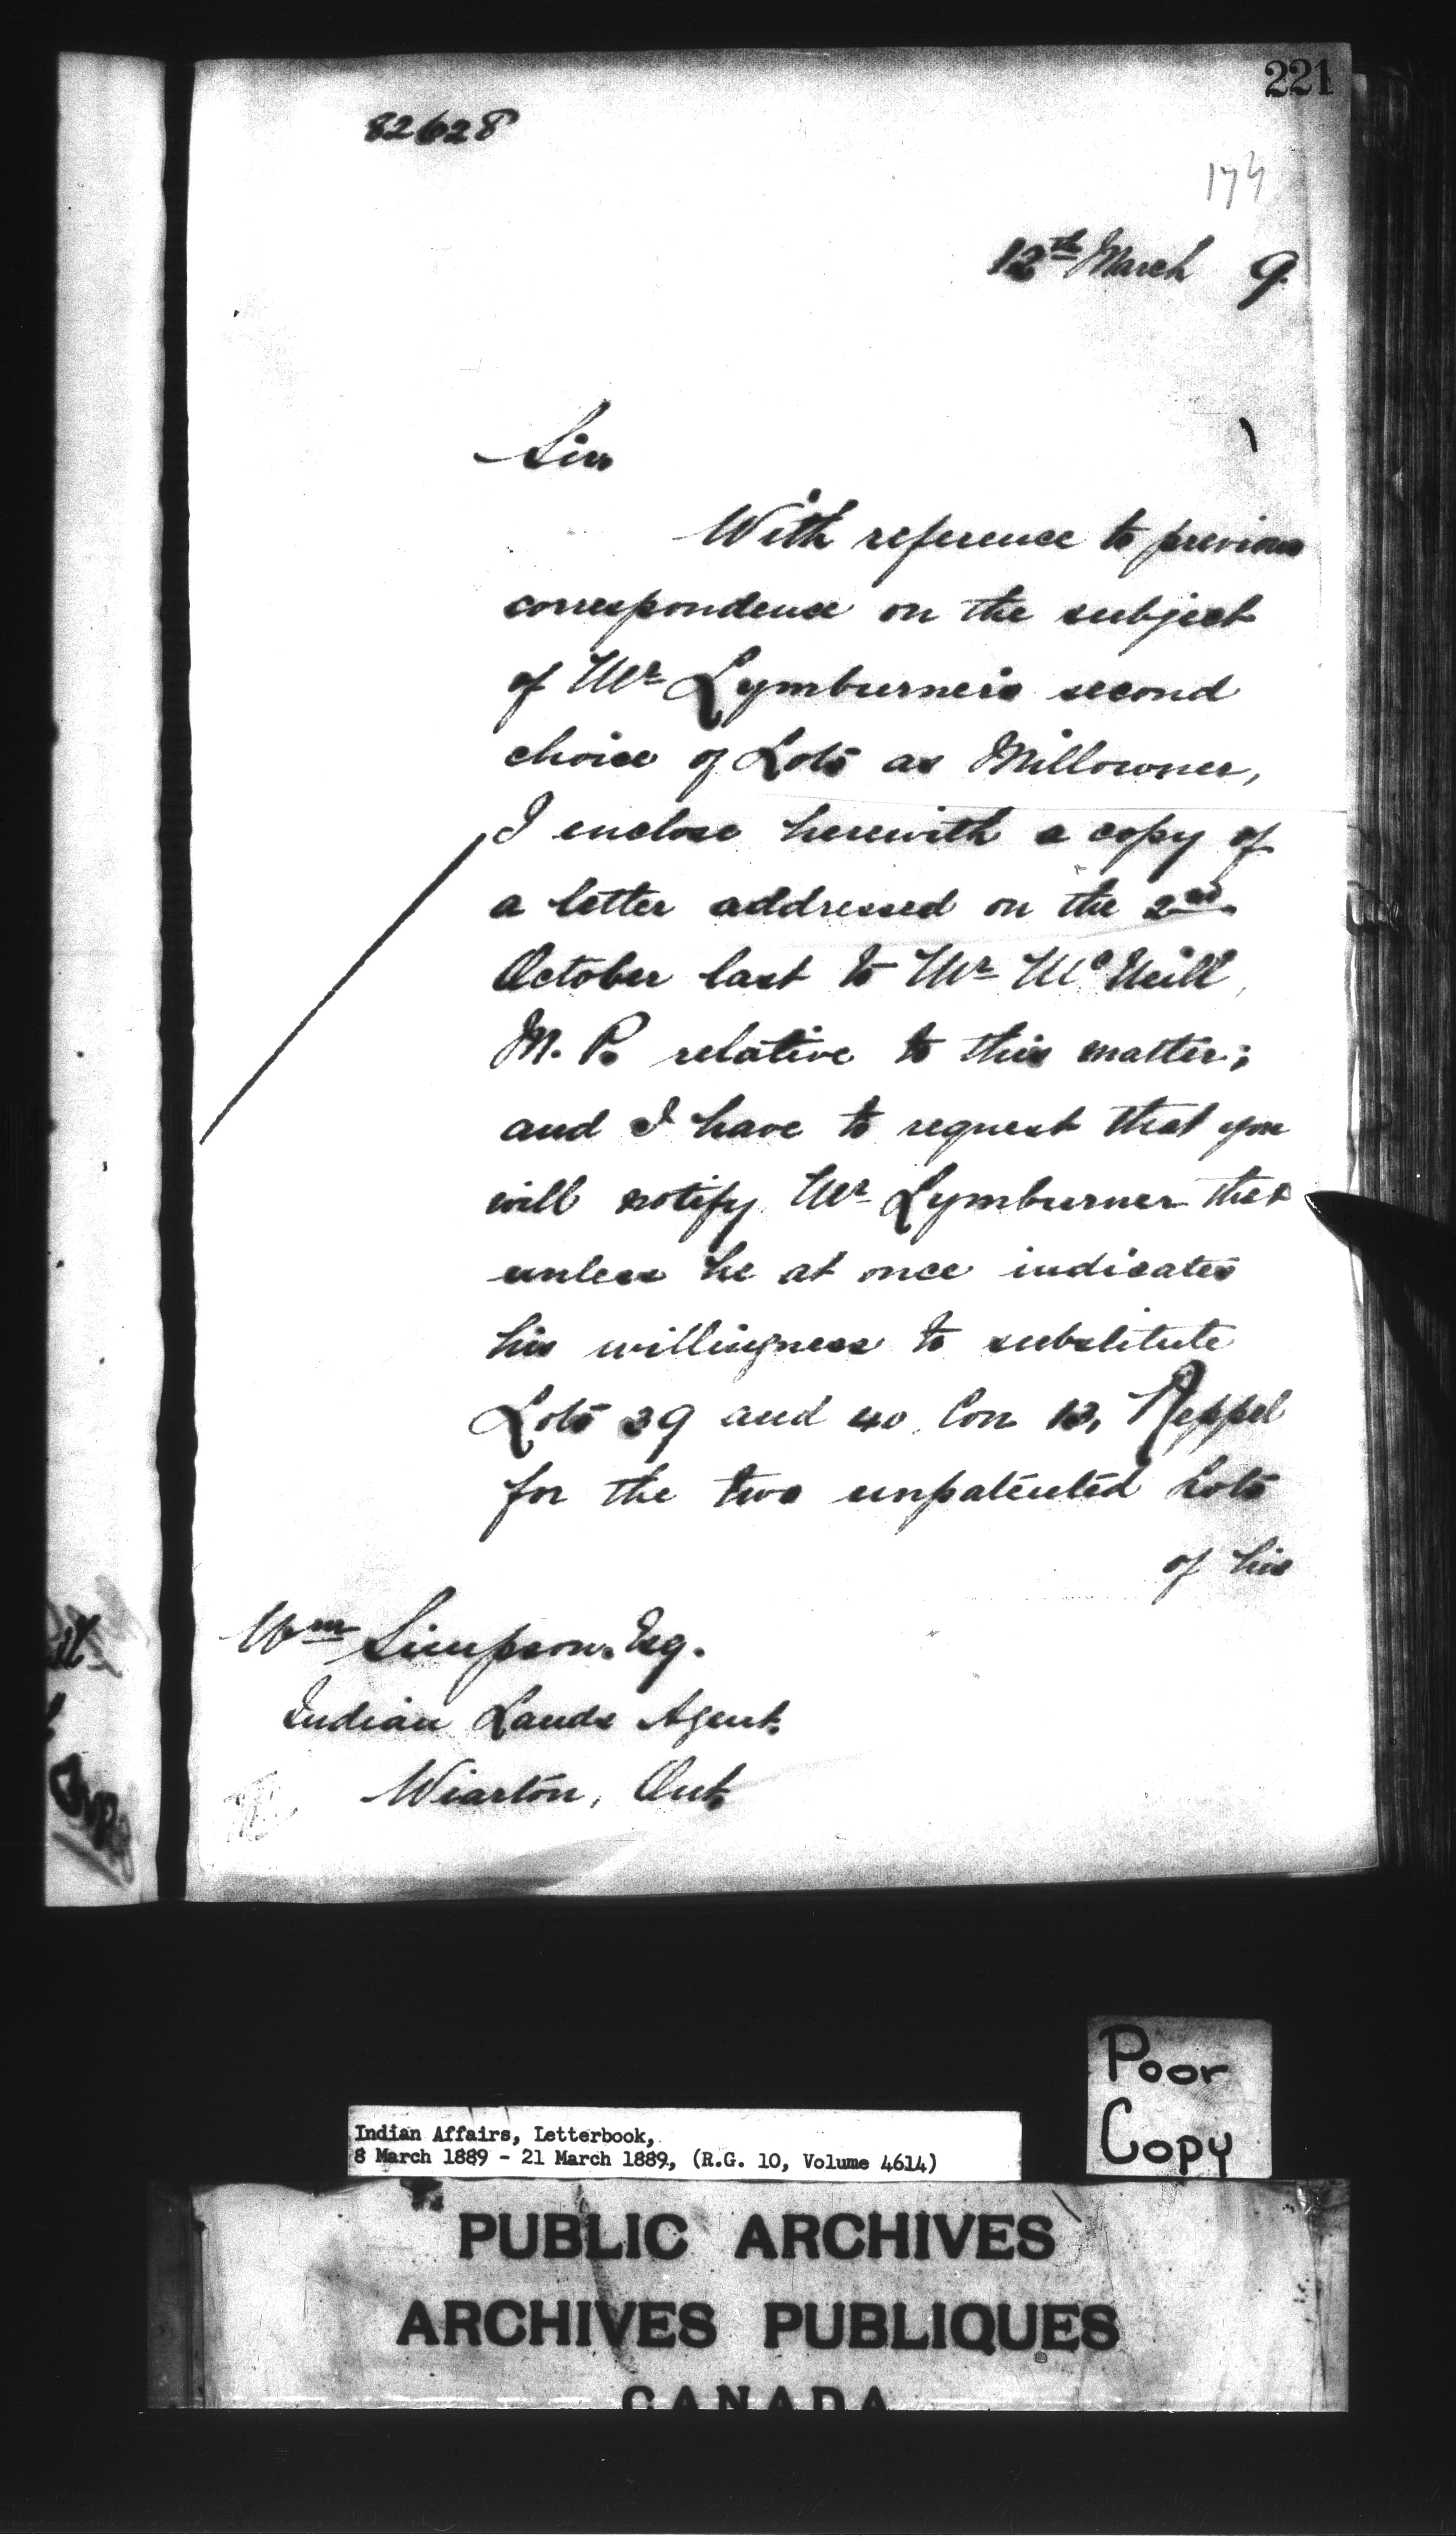 221
82628
174
12th March 9.
Sir
With reference to previous
correspondence on the subject
of Mr Lymburner's second
choice of Lots as Millowner,
I enclose herewith a copy of
a letter addressed on the 2nd
October last to Mr McNeill,
M. P. relative to this matter;
and I have to request that you
will notify Mr Lymburner that
unless he at once indicates
his willingness to substitute
Lots 39 and 40, Con 13, Keppel
for the two unpatented Lots
of his
Wm Simpson. Esq.
Indian Lands Agent.
Wiarton, Ont.
Poor
Copy
Indian Affairs, Letterbook,
8 March 1889 - 21 March 1889, (R.G. 10, Volume 4614)
PUBLIC ARCHIVES
ARCHIVES PUBLIQUES
CANADA